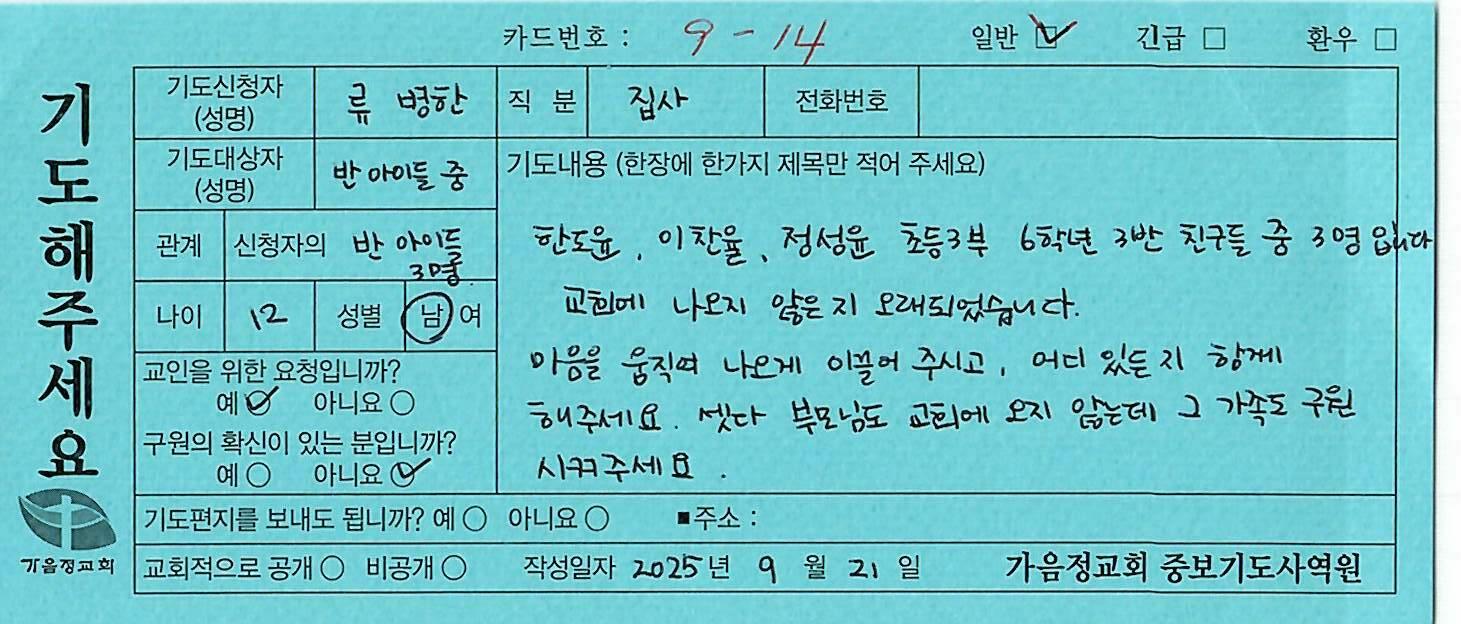 카드번호 : 9 - 14 일반 ☑ 긴급 □ 환우 □
기도해주세요
가음정교회
기도신청자 (성명) 류 병한 직 분 집사 전화번호
기도대상자 (성명) 반 아이들 중
기도내용 (한장에 한가지 제목만 적어 주세요)
관계 신청자의 반 아이들 3명.
나이 12 성별 남 여
한도윤, 이찬율, 정성윤 초등3부 6학년 3반 친구들 중 3명 입니다
교회에 나오지 않은 지 오래되었습니다.
마음을 움직여 나오게 이끌어 주시고, 어디 있든지 함께
해주세요. 셋다 부모님도 교회에 오지 않는데 그 가족도 구원
시켜주세요.
교인을 위한 요청입니까?
예 ☑ 아니요 ○
구원의 확신이 있는 분입니까?
예 ○ 아니요 ☑
기도편지를 보내도 됩니까? 예 ○ 아니요 ○ ■주소 :
교회적으로 공개 ○ 비공개 ○ 작성일자 2025 년 9 월 21 일 가음정교회 중보기도사역원